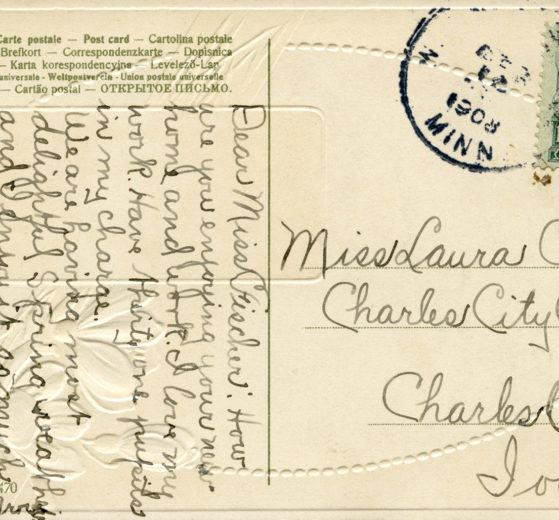 Carte postale — Post card — Cartolina postale
Brefkort — Correspondenzkarte — Dopisnica
— Karta korespondencyjna — Levelező-Lap
universale - Weltpostverein - Union postale universelle
— Cartão postal — ОТКРЫТОЕ ПИСЬМО.
MINN
1908
Dear Miss Fischer: How
are you enjoying your new
home and work. I love my
work. Have thirty one pupils
in my charge.
We are having most
delightful Spring weather
and I enjoy it so much
470
Miss Laura
Charles City
Charles
Io